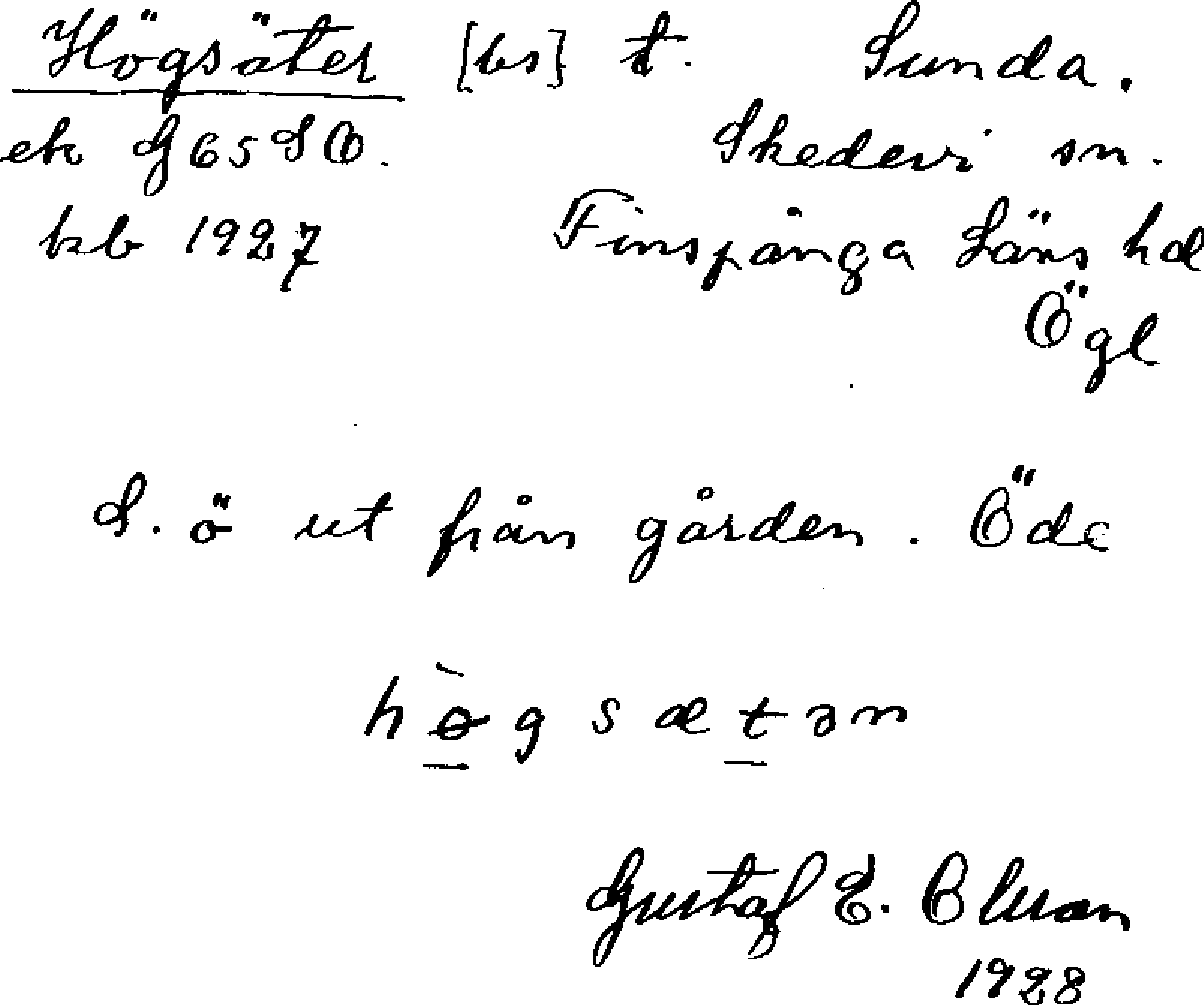 Högsäter [bs] t. Sunda.
ek G65SO. Skedevi sn.
kb 1927 Finspånga Läns hd
Ögl
S. ö ut från gården. Öde
hø̀gsætən
Gustaf E. Olsson
1928